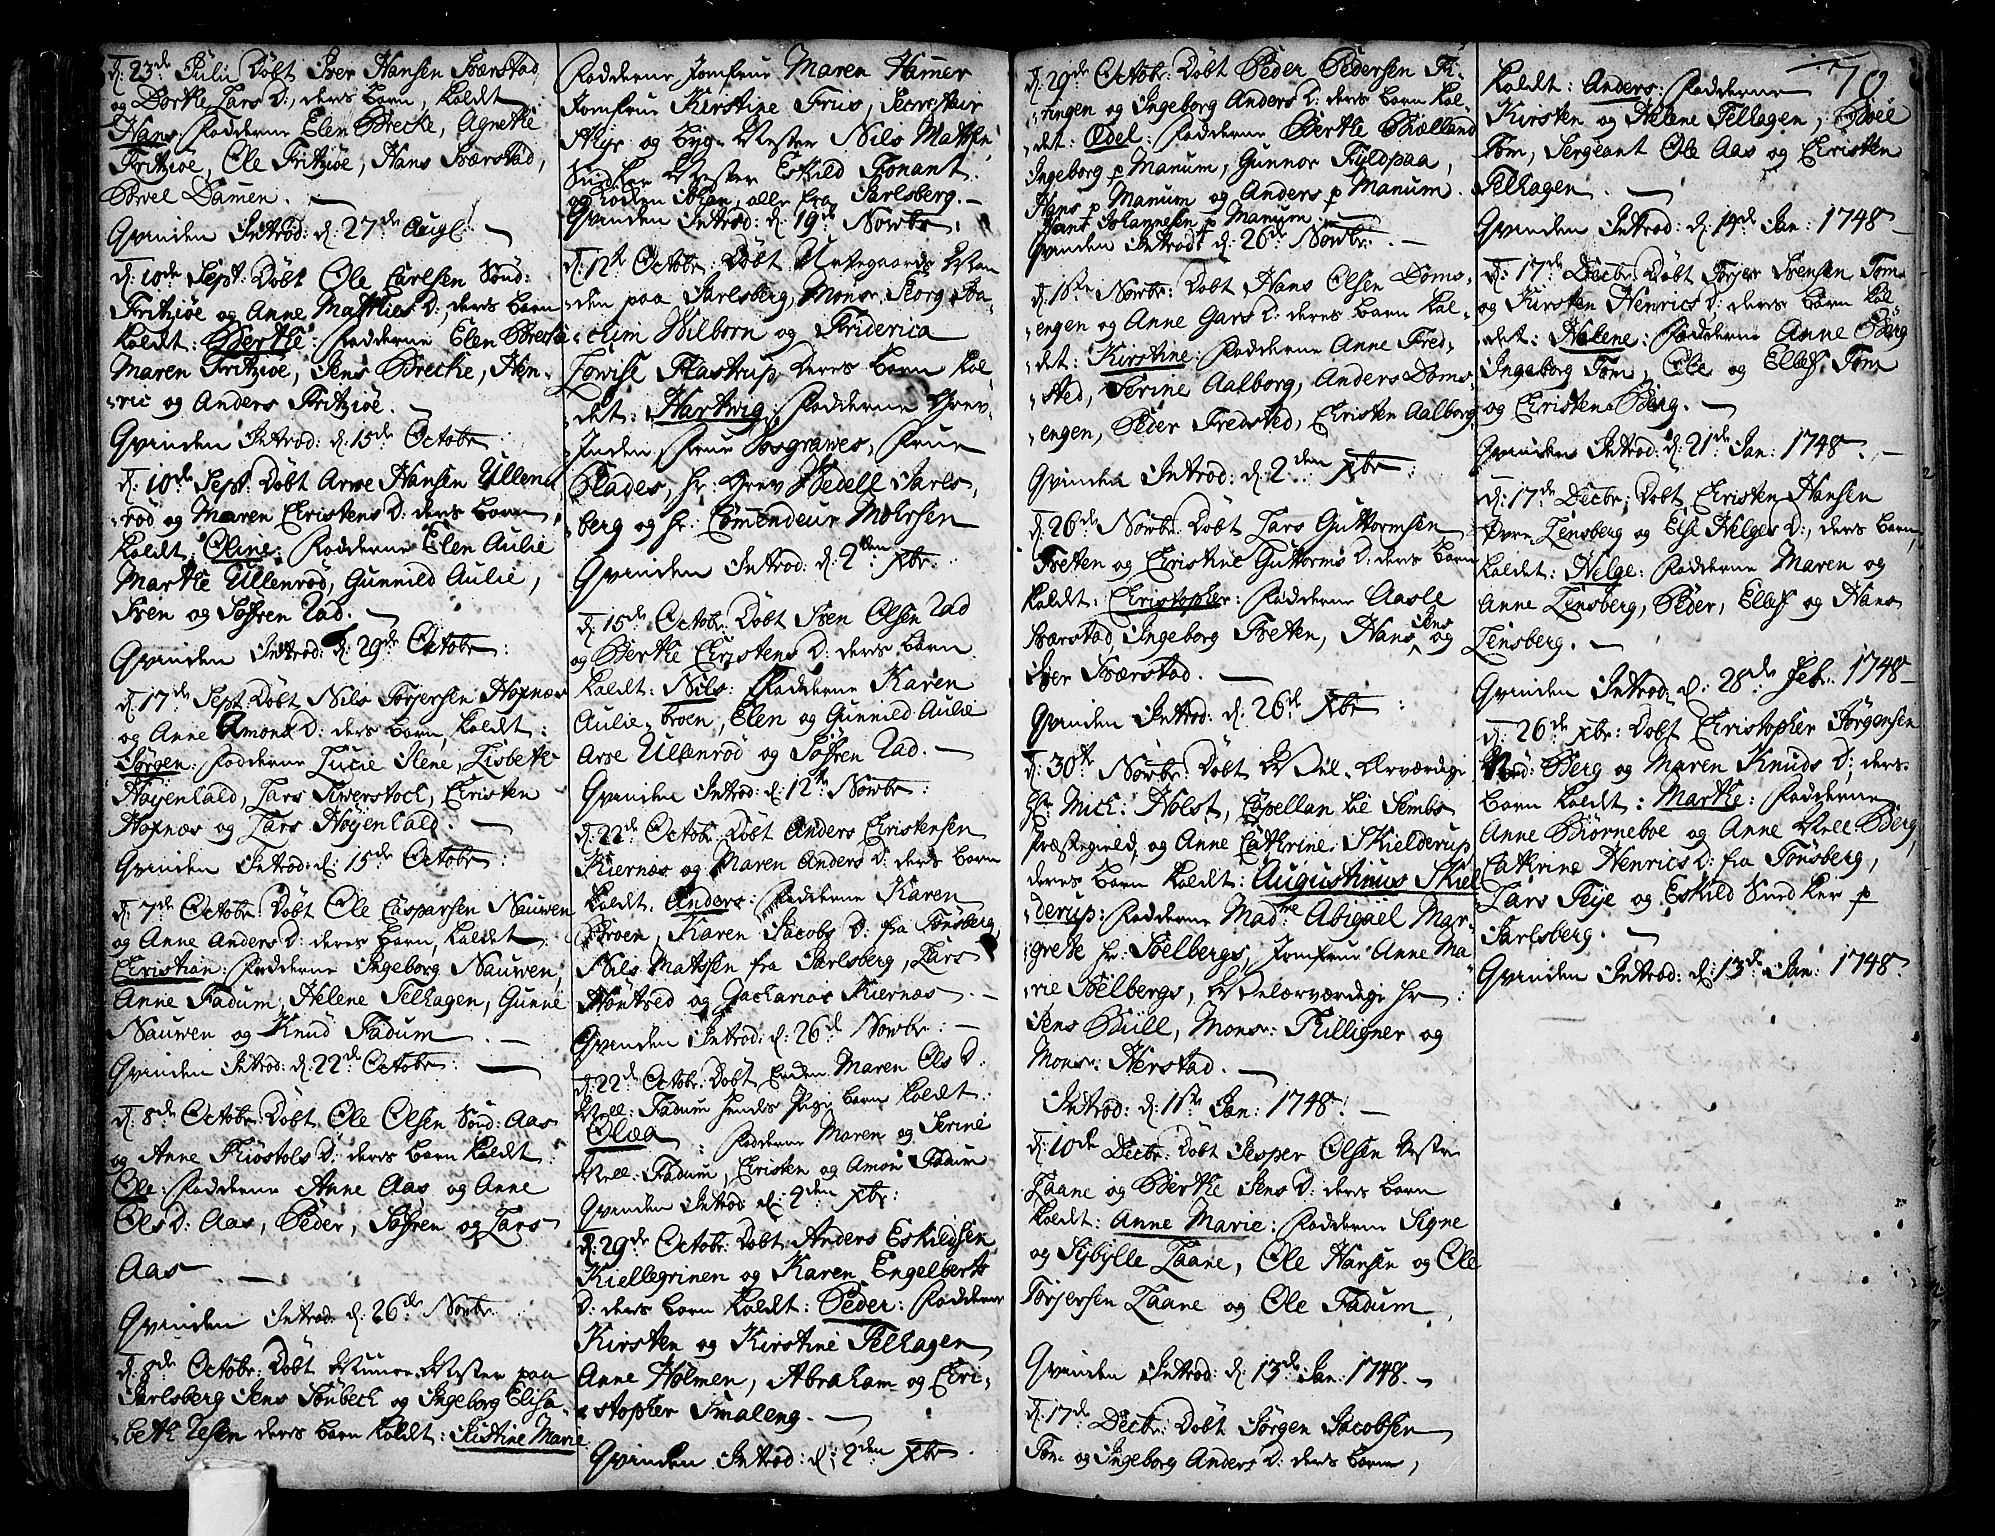 d: 23de Julii Döbt Iver Hansen Bærstad
og Dorthe Lars D:, deres barn, kaldt
Hans: fadderne Elen Brecke, Agnethe
Fritzöe, Ole Fritzöe, Hans Bærstad,
Bovel Damen. —
Qvinden Introd: d: 27de Augl: —
d: 10de Sept: Döbt Ole Carlsen Sönd:
Fritzöe og Anne Mathies D:, deres barn
kaldt: Berthe: fadderne Elen Brecke
Maren Fritzöe, Jens Brecke, Hen-
-ric og Anders Fritzöe. —
Qvinden Introd: d: 15de Octobr:
d: 10de Sept: Döbt Arve Hansen Ullen-
-röd og Maren Christens D: deres barn
kaldt: Oline: fadderne Elen Aulie
Marthe Ullenröd, Gunnild Aulie,
Sven og Söfren Rad. —
Qvinden Introd: d: 29de Octobr:
d: 17de Sept: Döbt Nils Torjersen Hopnæs
og Anne Amons D: deres barn, kaldt:
Jörgen: fadderne Lucie Ilene, Lisbeth
Höyenhald, Lars Tiverstoch, Christen
Hopnæs og Lars Höyenhald. —
Qvinden Introd: d: 15de Octobr:
d: 7de Octobr: Döbt Ole Casparsen Nauwen
og Anne Anders D: deres barn, kaldt:
Christian: fadderne Ingeborg Nauwen,
Anne Fadum, Helene Telhagen, Gunne
Nauwen og Knud Fadum —
Qvinden Introd: d: 22de Octobr: —
d: 8de Octobr: Döbt Ole Olsen Sönd: Aas
og Anne Tiöstols D: deres barn kaldt:
Ole: fadderne Anne Aas og Anne
Ols D: Aas, Peder, Söfren og Lars
Aas —
Qvinden Introd: d: 26de Novbr:
d: 8de Octobr: Döbt Muurmester paa
Jarlsberg Jens Tönbech og Ingeborg Elisa-
-beth deres barn kaldt: Kistine Marie
fadderne Jomfrue Maren Hamer
Jomfrue Kirstine Friis, Secretair
Alyr og byg-Mester Nils Matsen,
Snidker Mester Eskild Tonant
og Kodien Johan, alle fra Jarlsberg. —
Qvinden Introd: d: 19de Novbr:
d: 12te Octobr: Döbt Urtegaards Man-
-den paa Jarlsberg, Monsr. Georg Joa-
-chim Wilborn og Friderica
Lowise Flastrup deres barn kal-
-det: Hartwig: fadderne Grev-
-Inden, Frue Bosgrawes, Frue
Blades, Hr. Grev Wedell Jarls-
-berg og Hr: Comendeur Mohrsen
Qvinden Introd: d: 2den Xbr:
d: 15de Octobr: Döbt Sven Olsen Rad
og Berthe Christens D: deres barn
kaldt: Nils: fadderne Karen
Aulie-broen, Elen og Gunnild Aulie
Arve Ullenröd og Söfren Rad. —
Qvinden Introd: d: 12te Novbr:
d: 22de Octobr: Döbt Anders Christensen
Kiernæs og Maren Anders D: deres barn
kaldt: Anders: fadderne Karen
Broen, Karen Jacobs D: fra Tönsberg,
Nils Matssen fra Jarlsberg, Lars
Höntved og Zacharias Kiernæs. —
Qvinden Introd: d: 26de Novbr: —
d: 22de Octobr: Döbt Enken Maren Ols D:
Mell: Fadum hendes barn kaldt:
Olæa: fadderne Maren og Serine
Mell: Fadum, Christen og Amon Fadum
Qvinden Introd: d: 2den Xbr:
d: 29de Octobr: Döbt Anders Eskildsen
Kiellegrinen og Karen Engelberts
D: deres barn kaldt: Peder: fadderne
Kirsten og Kirstine Telhagen,
Anne Holmen, Abraham og Chri-
-stopher Smaleng. —
Qvinden Introd: d: 2den Xbr
d: 29de Octobr: Döbt Peder Pedersen Fi-
-ringen og Ingeborg Anders D: deres barn kal-
-det: Edel: fadderne Berthe Biælland
Ingeborg p Manum, Gunnor Fyldpaa,
Hans p Manum og Anders p Manum.
Hans Johannesen p Manum —
Qvinden Introd: d: 26de Novbr: —
d: 15de Novbr: Döbt Hans Olsen Doms-
-engen og Anne Gars D: deres barn kal-
-det: Kirstine: fadderne Anne Fred-
-sted, Serine Aalborg, Anders Doms-
-engen, Peder Fredsted, Christen Aalborg
Qvinden Introd: d: 2den Xbr:
d: 26de Novbr: Döbt Lars Guttormsen
Tveten og Christine Guttorms D: deres barn
kaldt: Christopher: fadderne Aasle
Bærstad, Ingeborg Tveten, Hans, Jens og
Iver Bærstad. —
Qvinden Introd: d: 26de Xbr:
d: 30te Novbr: Döbt Vel-Ærværdige
Hr Mich: Holst, Capellan til Sembs
Præstegield, og Anne Cathrine Skielderup
deres barn kaldt: Augustinus Skiel-
-derup: fadderne Madme Abigael Mar-
-grete Hr: Bölbergs, Jomfrue Anne Ma-
-rie Bölbergs, Velærværdige Hr:
Jens Bull, Monsr: Filligner og
Monsr: Herstad. —
Introd: d: 11te Jan: 1748. —
d: 10de Decbr: Döbt Jesper Olsen Vestre
Laane og Berthe Jens D: deres barn
kaldt: Anne Marie: fadderne Signe
og Sybylle Laane, Ole Hansen og Ole
Torjersen Laane og Ole Fadum
Qvinden Introd: d: 13de Jan: 1748. —
d: 17de Decbr: Döbt Jörgen Jacobsen
Tom og Ingeborg Anders D: deres barn,
70
kaldt: Anders: fadderne
Kirsten og Helene Telhagen, Boel
Tom, Sergeant Ole Aas og Christen
Telhagen. —
Qvinden Introd: d: 14de Jan: 1748 —
d: 17de Decbr: Döbt Torjer Svensen Tom
og Kirsten Henrics D: deres barn kal-
-det: Helene: fadderne Anne Berg
Ingeborg Tom, Ole og Ellef Tom
og Christen Berg. —
Qvinden Introd: d: 21de Jan: 1748. —
d: 17de Decbr: Döbt Christen Hansen
Övre Linsberg og Else Helges D:, deres barn,
kaldt: Helge: fadderne Maren og
Anne Linsberg, Peder, Ellef og Hans
Linsberg. —
Qvinden Introd: d: 28de Feb: 1748 —
d: 26de Xbr: Döbt Christopher Jörgensen
Nord: Berg og Maren Knuds D: deres
barn kaldt: Marthe: fadderne
Anne Biörneboe og Anne Mell Berg,
Cathrine Henrics D: fra Tönsberg,
Lars Teye og Eskild Snedker p
Jarlsberg. —
Qvinden Introd: d: 13de Jan: 1748.